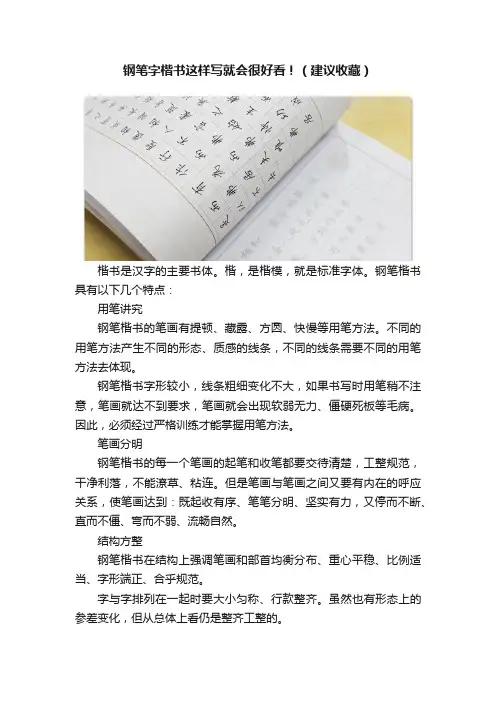 钢笔字楷书这样写就会很好看！（建议收藏）
楷书是汉字的主要书体。楷，是楷模，就是标准字体。钢笔楷书
具有以下几个特点：
用笔讲究
钢笔楷书的笔画有提顿、藏露、方圆、快慢等用笔方法。不同的
用笔方法产生不同的形态、质感的线条，不同的线条需要不同的用笔
方法去体现。
钢笔楷书字形较小，线条粗细变化不大，如果书写时用笔稍不注
意，笔画就达不到要求，笔画就会出现软弱无力、僵硬死板等毛病。
因此，必须经过严格训练才能掌握用笔方法。
笔画分明
钢笔楷书的每一个笔画的起笔和收笔都要交待清楚，工整规范，
干净利落，不能潦草、粘连。但是笔画与笔画之间又要有内在的呼应
关系，使笔画达到：既起收有序、笔笔分明、坚实有力，又停而不断、
直而不僵、弯而不弱、流畅自然。
结构方整
钢笔楷书在结构上强调笔画和部首均衡分布、重心平稳、比例适
当、字形端正、合乎规范。
字与字排列在一起时要大小匀称、行款整齐。虽然也有形态上的
参差变化，但从总体上看仍是整齐工整的。